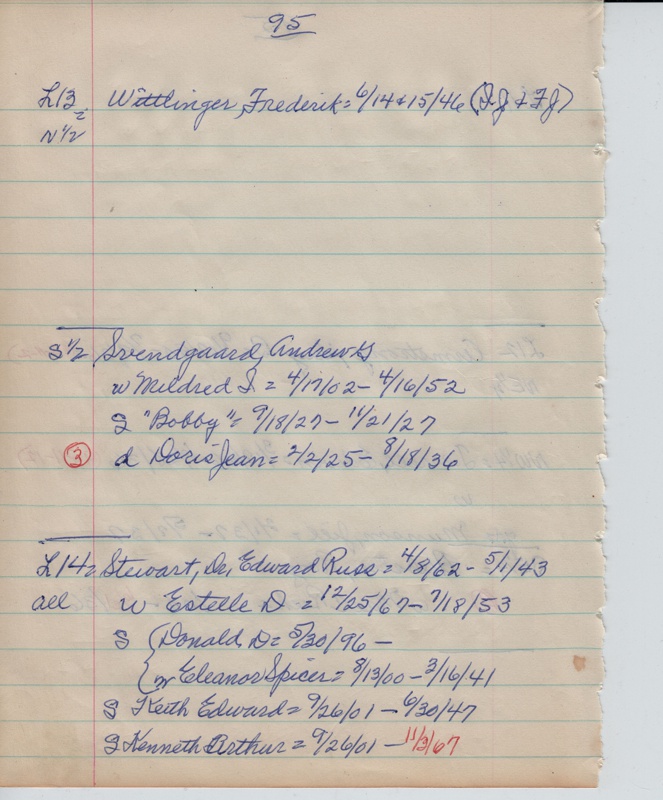 95
L13= Wittlinger, Frederik= 6/14&15/46 (DJ & FJ)
N 1/2
S 1/2 Svendgaard, Andrew
w Mildred S. = 4/17/02 - 4/16/52
S "Bobby" = 9/18/27 - 11/21/27
3 d Doris Jean = 2/2/25 - 8/18/36
L14= Stewart, Dr. Edward Russ = 4/8/62 - 5/1/43
all w Estelle D = 12/25/67 - 7/18/53
S Donald D = 5/30/96 -
w Eleanor Spicer = 8/13/00 - 3/16/41
S Keith Edward = 9/26/01 - 6/30/47
S Kenneth Arthur = 9/26/01 - 11/3/67